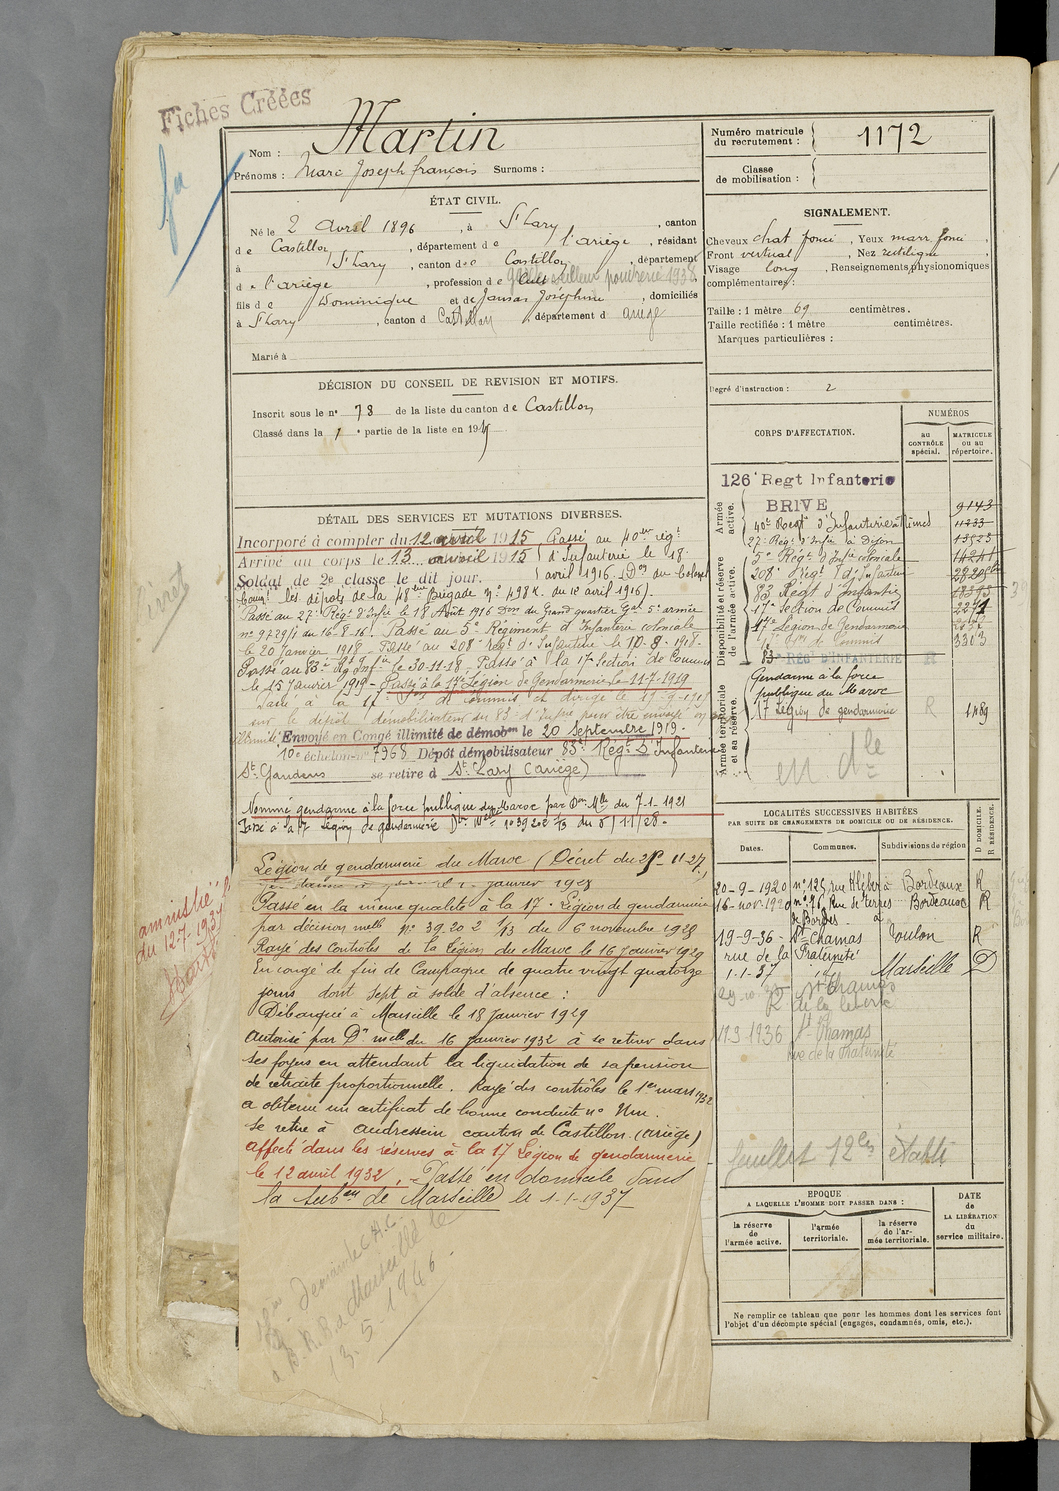 Fiches Créées
Nom : Martin
Prénoms : Marc Joseph françois Surnoms :
ÉTAT CIVIL.
Né le 2 Avril 1896, à St Lary, canton
de Castillon, département de l'ariège, résidant
à St Lary, canton de Castillon, département
de l'ariège, profession de poudrerie 1938
fils de Dominique et de Jansas Joséphine, domiciliés
à St Lary, canton d Castillon, département d ariège
Marié à
DÉCISION DU CONSEIL DE REVISION ET MOTIFS.
Inscrit sous le nº 78 de la liste du canton de Castillon
Classé dans la 1e partie de la liste en 1915
DÉTAIL DES SERVICES ET MUTATIONS DIVERSES.
Incorporé à compter du 12 avril 1915, Passé au 40e régt
Arrivé au corps le 13 avril 1915 d'Infanterie le 18
Soldat de 2e classe le dit jour. avril 1916. (Don du Colonel
Comt les dépôts de la 48e Brigade nº 498 K. du 10 avril 1916).
Passé au 27e Régt d'Infie le 18 Août 1916 Don du Grand quartier Gal 5e armée
nº 9729/1 du 16-8-16. Passé au 5e Régiment d'Infanterie coloniale
le 20 janvier 1918 - Passé au 208e Régt d'Infanterie le 10-8-1918.
Passé au 83e Rég Infie le 30-11-18 - Passé à la 17e Section de Commis
le 15 Janvier 1919 - Passé à la 17e Légion de Gendarmerie le 11-7-1919
Passé à la 17e Son de Commis et dirigé le
sur le dépôt démobilisateur du 83e d'Infie pour être envoyé en congé
illimité Envoyé en Congé illimité de démobon le 20 Septembre 1919.
10e échelon nº 7965 Dépôt démobilisateur 83e Régt d'Infanterie
St Gaudens se retire à St Lary (Ariège)
Nommé gendarme à la force publique du Maroc par Don Mlle du 7-1-1921
Passé à la 17e Légion de gendarmerie Don Melle nº 39202 1/3 du 6/11/28.
Légion de gendarmerie du Maroc (Décret du 28-11-27)
janvier 1928
Passé en la même qualité à la 17e Légion de gendarmerie
par décision melle nº 39.202 1/3 du 6 novembre 1928
Rayé des Contrôles de la Légion du Maroc le 16 Janvier 1929
En congé de fin de Campagne de quatre vingt quatorze
jours dont sept à solde d'absence :
Débarqué à Marseille le 18 Janvier 1929
autorisé par Dn melle du 16 janvier 1932 à se retirer dans
ses foyers en attendant la liquidation de sa pension
de retraite proportionnelle. Rayé des contrôles le 1er mars 1932
a obtenu un certificat de bonne conduite nº Um.
Se retire à Audressein canton de Castillon (ariège)
affecté dans les réserves à la 17 Légion de gendarmerie
le 12 avril 1932. - Passé en domicile dans
la Subon de Marseille le 1-1-1937
Demande C.A.C.
a B. M. R a Marseille le
13. 5. 1946
amnistié
du 12-7-1937
Numéro matricule du recrutement : 1172
Classe de mobilisation :
SIGNALEMENT.
Cheveux chat foncé, Yeux marr. foncé,
Front vertical, Nez rectiligne,
Visage long, Renseignements physionomiques
complémentaires :
Taille : 1 mètre 69 centimètres.
Taille rectifiée : 1 mètre centimètres.
Marques particulières :
Degré d'instruction : 2
CORPS D'AFFECTATION.
NUMÉROS
AU CONTRÔLE spécial.
MATRICULE OU AU répertoire.
Armée active.
126e Regt Infanterie
BRIVE 9143
40e Regt d'Infanterie à Nîmes 11233
27e Régt d'Infie à Dijon 13523
Disponibilité et réserve de l'armée active.
5e Régt d'Infie coloniale
208e Régt d'Infanterie
83 Régt d'Infantrie 18393
17e Section de Commis 2271
17e Légion de Gendarmerie
17e Son de Commis 3303
83e REGt D'INFANTERIE R
Armée territoriale et sa réserve.
Gendarme à la force
publique du Maroc
17 Légion de gendarmerie R 1489
en dle
LOCALITÉS SUCCESSIVES HABITÉES
PAR SUITE DE CHANGEMENTS DE DOMICILE OU DE RÉSIDENCE.
Dates. Communes. Subdivisions de région
D DOMICILE. R RÉSIDENCE.
20-9-1920 nº 125 rue Kléber à Bordeaux R
16-nov-1920 nº 76, Rue de Terres de Bordes à Bordeaux R
19-9-36 - St Chamas Toulon R
rue de la Fraternité
1.1-37 id Marseille D
St Chamas
19.9 1936 St Chamas
rue de la Fraternité
feuillet 12 bis établi
EPOQUE
A LAQUELLE L'HOMME DOIT PASSER DANS :
la réserve de l'armée active.
l'armée territoriale.
la réserve de l'armée territoriale.
DATE de LA LIBÉRATION du service militaire.
Ne remplir ce tableau que pour les hommes dont les services font
l'objet d'un décompte spécial (engagés, condamnés, omis, etc.).